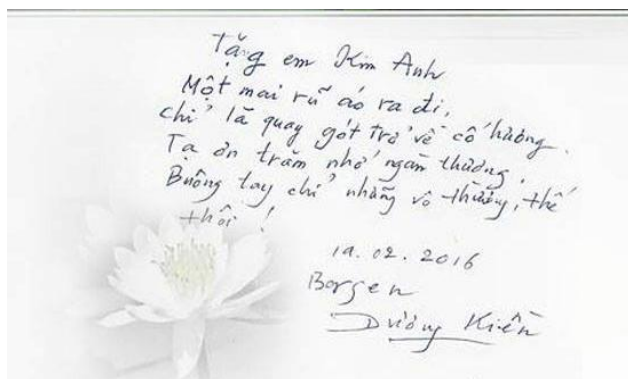 Tặng em Kim Anh
Một mai rũ áo ra đi,
chỉ là quay gót trở về cố hương.
Tạ ơn trăm nhớ ngàn thương,
Buông tay chỉ những vô thường, thế
thôi !
19.02.2016
Borgen
Dương Kiền